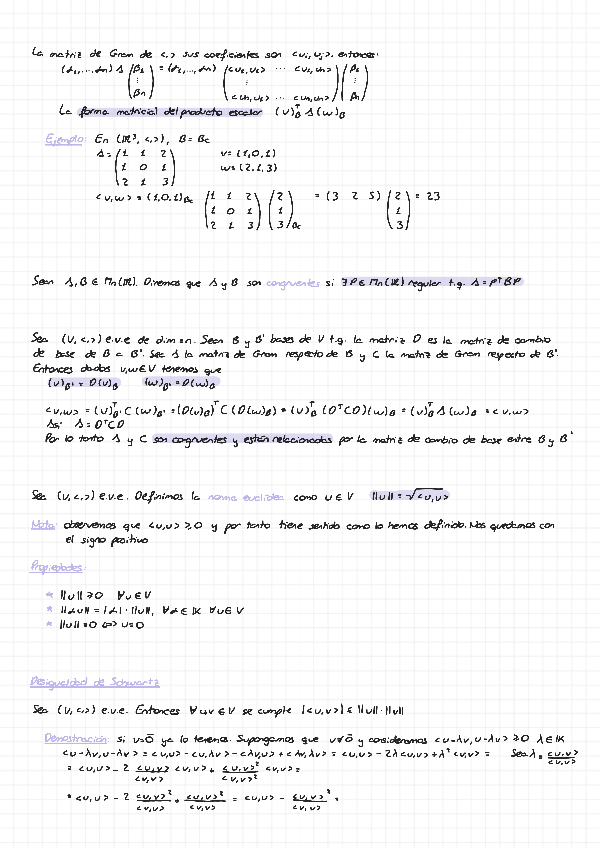 La matriz de Gram de <,> sus coeficientes son <ui,uj>. entonces:
(α1,...,αn) A (β1 ⋮ βn) = (α1,...,αn) (<u1,u1> ... <u1,un> ⋮ <un,u1> ... <un,un>) (β1 ⋮ βn)
La forma matricial del producto escalar (v)ᵀ_B A (w)_B
Ejemplo: En (ℝ³, <,>), B = Bc
A = (1 1 2 / 1 0 1 / 2 1 3) v = (1,0,1) w = (2,1,3)
<v,w> = (1,0,1)Bc (1 1 2 / 1 0 1 / 2 1 3) (2 / 1 / 3)Bc = (3 2 5) (2 / 1 / 3) = 23
Sean A, B ∈ Mn(ℝ). Diremos que A y B son congruentes si ∃ P ∈ Mn(ℝ) regular t.q. A = PᵀBP
Sea (V,<,>) e.v.e de dim = n. Sean B y B' bases de V t.q. la matriz D es la matriz de cambio
de base de B a B'. Sea A la matriz de Gram respecto de B y C la matriz de Gram respecto de B'.
Entonces dados v,w ∈ V tenemos que
(v)_B' = D(v)_B (w)_B' = D(w)_B
<v,w> = (v)ᵀ_B' C (w)_B' = (D(v)_B)ᵀ C (D(w)_B) = (v)ᵀ_B (DᵀCD)(w)_B = (v)ᵀ_B A (w)_B = <v,w>
Así A = DᵀCD
Por lo tanto A y C son congruentes y están relacionados por la matriz de cambio de base entre B y B'
Sea (V,<,>) e.v.e. Definimos la norma euclídea como u ∈ V ||u|| = √<u,u>
Nota: observemos que <u,u> ≥ 0 y por tanto tiene sentido como lo hemos definido. Nos quedamos con
el signo positivo
Propiedades:
* ||u|| ≥ 0 ∀u ∈ V
* ||αu|| = |α|·||u||, ∀α ∈ K ∀u ∈ V
* ||u|| = 0 ⇔ u = 0
Desigualdad de Schwartz
Sea (V,<,>) e.v.e. Entonces ∀u,v ∈ V se cumple |<u,v>| ≤ ||u||·||v||
Demostración: si v = 0 ya lo tenemos. Supongamos que v ≠ 0 y consideramos <u-λv, u-λv> ≥ 0 λ ∈ K
<u-λv, u-λv> = <u,u> - <u,λv> - <λv,u> + <λv,λv> = <u,u> - 2λ<u,v> + λ²<v,v> = Sea λ = <u,v>/<v,v>
= <u,u> - 2 <u,v>/<v,v> <u,v> + <u,v>²/<v,v>² <v,v> =
= <u,u> - 2 <u,v>²/<v,v> + <u,v>²/<v,v> = <u,u> - <u,v>²/<v,v> =